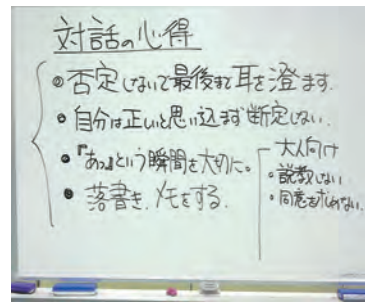 対話の心得
◎ 否定しないで最後まで耳を澄ます.
• 自分は正しいと思い込まず断定しない.
• 『あっ』という瞬間を大切に。
• 落書き、メモをする.
大人向け
• 説教しない
• 同意を求めない.